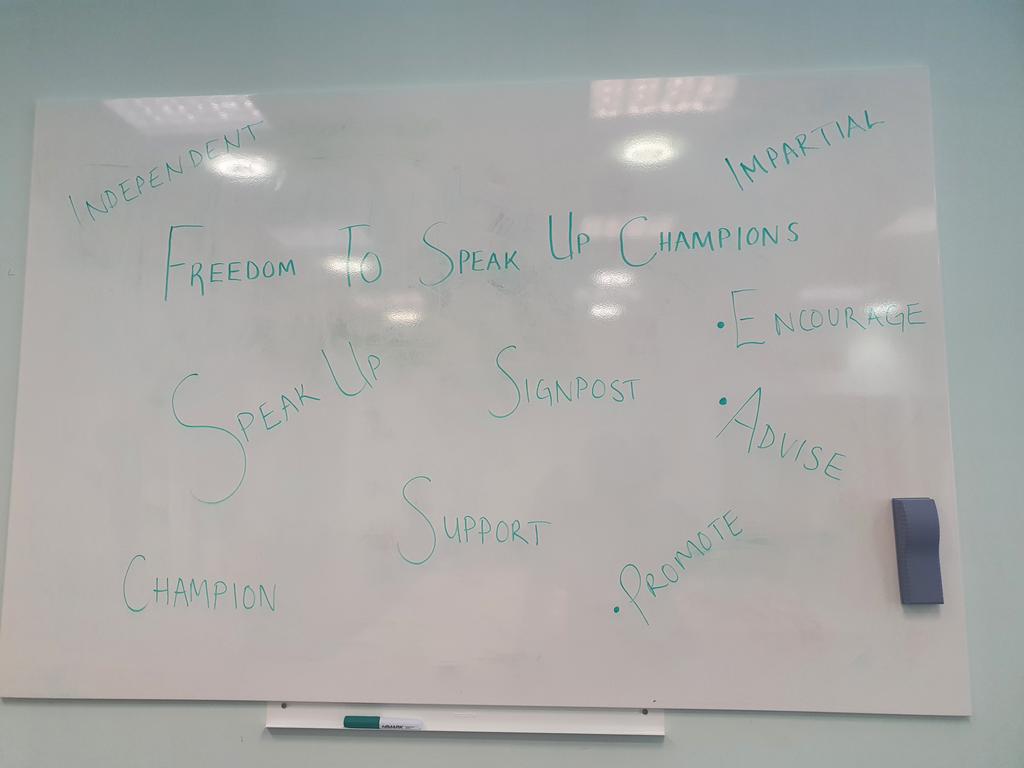 INDEPENDENT
IMPARTIAL
FREEDOM TO SPEAK UP CHAMPIONS
• ENCOURAGE
SPEAK UP
SIGNPOST
• ADVISE
SUPPORT
• PROMOTE
CHAMPION